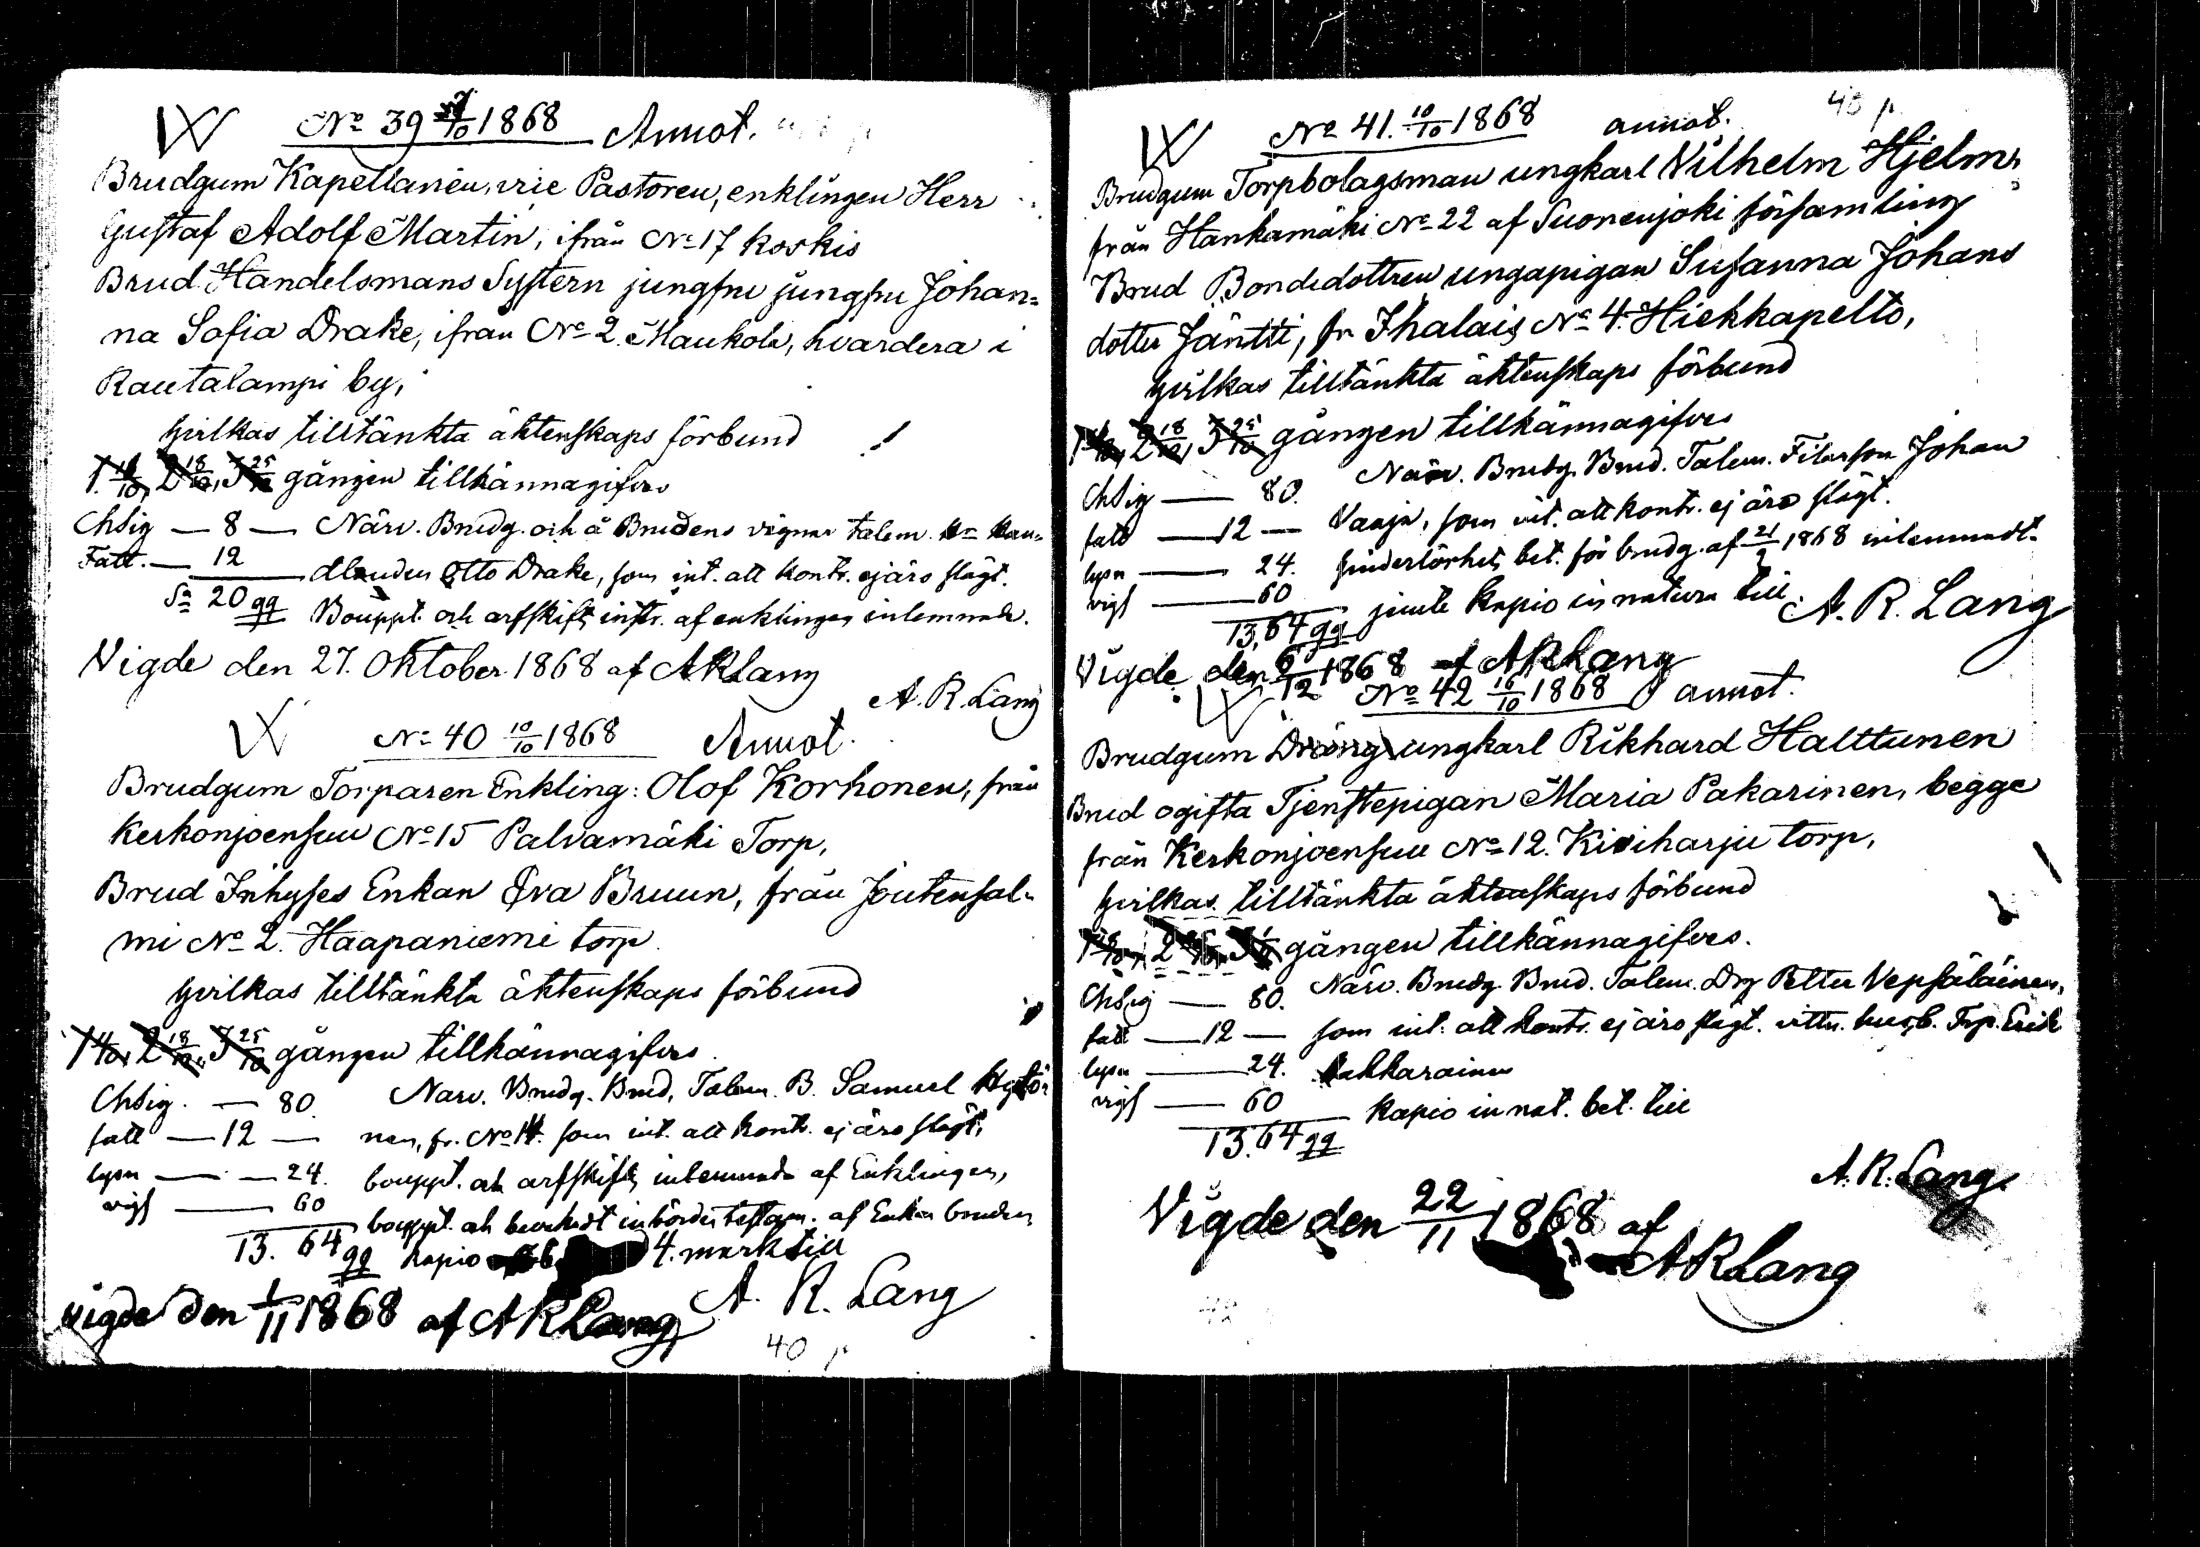 W No 39 7/10 1868 Annot.
Brudgum Kapellanen, vice Pastoren, enklingen Herr
Gustaf Adolf Martin, ifrån No 17 Koskis
Brud Handelsmans Systern jungfru jungfru Johan=
na Sofia Drake, ifrån No 2. Maukola, hvardera i
Rautalampi by,
hvilkas tilltänkta äktenskaps förbund
1. 11/10, 2 18/10, 3 25/10 gången tillkännagifves
Chsig — 8 — Närv. Brudg. och å Brudens vägnar talem. Hr Han=
Fatt. — 12 — dlanden Otto Drake, som int. att kontr. ej äro slägt.
Sa 20 gg Bouppt. och arfskifts instr. af enklingen inlemnade.
Vigde den 27. Oktober 1868 af A R Lang
A. R. Lang
W No 40 10/10 1868 Annot.
Brudgum Torparen Enkling: Olof Korhonen, från
Kerkonjoensuu No 15 Palvamäki Torp,
Brud Inhyses Enkan Eva Bruun, från Joutensal=
mi No 2. Haapaniemi torp.
hvilkas tilltänkta äktenskaps förbund
1 11/10, 2 18/10, 3 25/10 gången tillkännagifves.
Chsig. — 80. Närv. Brudg. Brud, Talem. B. Samuel
fatt — 12 — nen, fr. No 14. som int. att kontr. ej äro slägt,
lysn — — 24. bouppt. och arfskifts inlemnade af Enklingen,
vigs — 60 bouppt. och inbördes testam. af Enkan bruden
13. 64 gg kapio 4. mark till
vigde den 1/11 1868 af A R Lang A. R. Lang
40 p
43 p
W No 41. 10/10 1868 annot.
Brudgum Torpbolagsman ungkarl Vilhelm Hjelm,
från Hankamäki No 22 af Suonenjoki församling
Brud Bondedottren ungapigan Susanna Johans
dotter Jäntti, fr. Ihalais No 4. Hiekkapelto,
hvilkas tilltänkta äktenskaps förbund
1 11/10, 2 18/10, 3 25/10 gången tillkännagifves
Chsig — 80. Närv. Brudg. Brud. Talem. Johan
fatt — 12 — Vaaja, som int. att kontr. ej äro slägt.
lysn — 24. hinderlöshets bet. för brudg. af 21/9 1868 inlemnadt.
vigs — 60 jemte kapio in natura till.
13. 64 gg A. R. Lang
Vigde den 6/12 1868 af A R Lang
W No 42 10/10 1868 annot.
Brudgum Dräng ungkarl Rikhard Halttunen
Brud ogifta Tjenstepigan Maria Pakarinen, begge
från Kerkonjoensuu No 12. Kiviharju torp,
hvilkas tilltänkta äktenskaps förbund
1 18/10, 2 25/10, 3 1/11 gången tillkännagifves.
Chsig — 80. Närv. Brudg. Brud. Talem. Drg Petter Vepsäläinen,
fatt — 12 — som int. att kontr. ej äro slägt. vittn. husb. Trp. Erik
lysn — 24. Kakkarainen
vigs — 60 Kapio in nat. bet. till
13. 64 gg
A. R. Lang.
Vigde den 22/11 1868 af
A R Lang